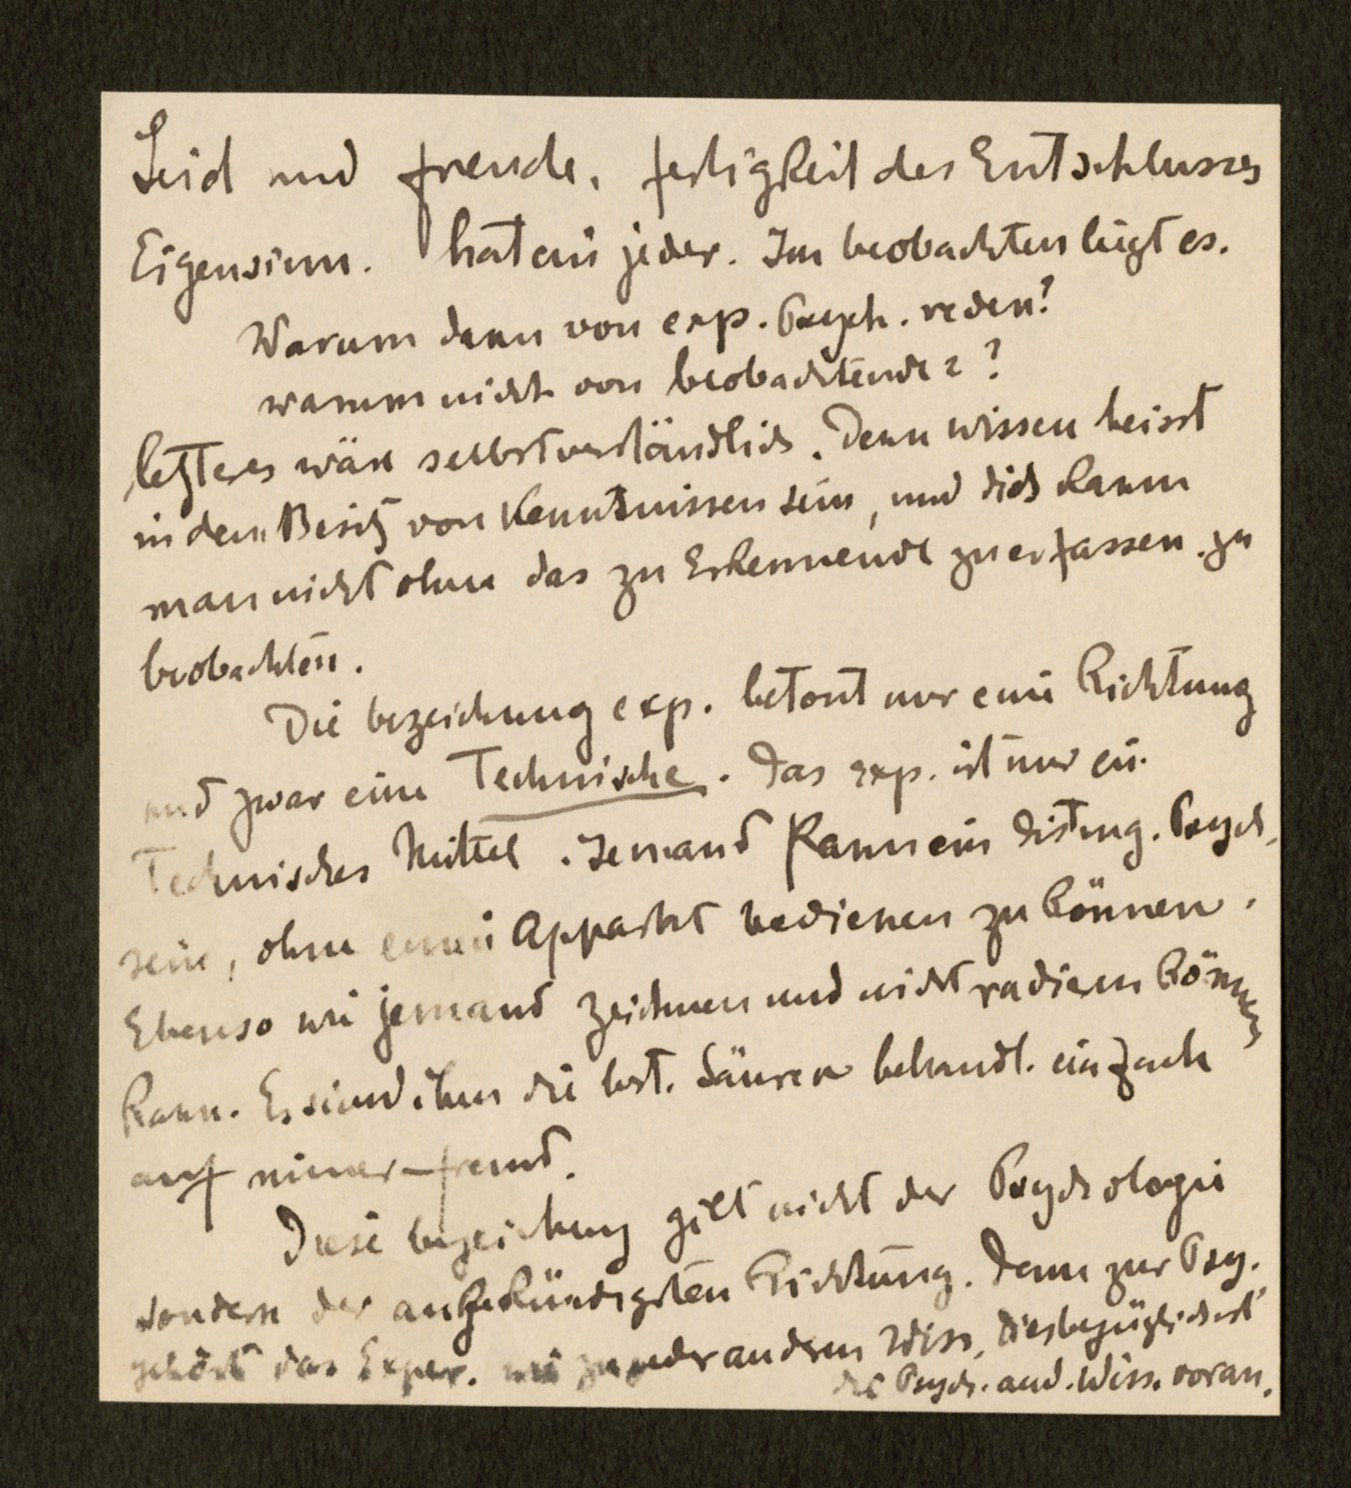 Leid und freude, festigkeit des Entschlusses
Eigensinn. hat ein jeder. Im beobachten liegt es.
Warum denn von exp. Psych. reden?
warum nicht von beobachtender?
letzteres wäre selbstverständlich. Denn wissen heisst
in dem Besitz von Kenntnissen sein, und dies kann
man nicht ohne das zu Erkennende zu erfassen. zu
beobachten.
Die bezeichnung exp. betont nur eine Richtung
und zwar eine Technische. Das exp. ist nur ein
Technisches Mittel. Jemand kann ein disting. Psych.
sein, ohne einen Apparat bedienen zu können.
Ebenso wie jemand zeichnen und nicht radieren können
kann. Es sind ihm die best. Säuren behandl. einfach
auf nimmer fremd.
Diese bezeichung gilt nicht der Psychologie
sondern der angekündigten Richtung. Denn zur Psy.
gehört das Exper. wie zu jeder andern Wiss. diesbezüglich
die Psych. and. Wiss. voran.